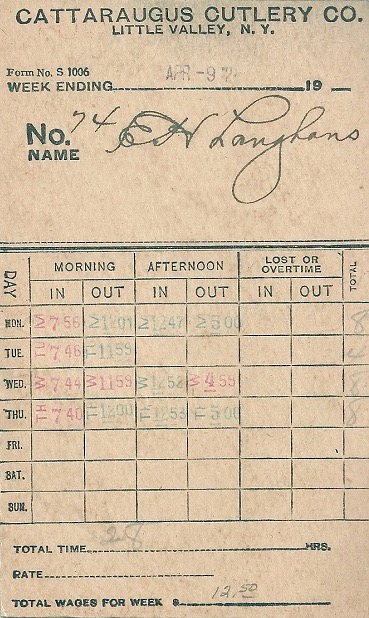 CATTARAUGUS CUTLERY CO.
LITTLE VALLEY, N. Y.
Form No. S 1006
WEEK ENDING APR -9 19
No. 74 E H Langhans
NAME
DAY MORNING AFTERNOON LOST OR OVERTIME TOTAL
IN OUT IN OUT IN OUT
MON. M 7 56 M 12 01 M 12 47 M 5 00 8
TUE. T 7 46 T 11 59 4
WED. W 7 44 W 11 59 W 12 52 W 4 59 8
THU. TH 7 40 TH 12 00 TH 12 53 TH 5 00 8
FRI.
SAT.
SUN.
TOTAL TIME 28 HRS.
RATE
TOTAL WAGES FOR WEEK $ 12.50